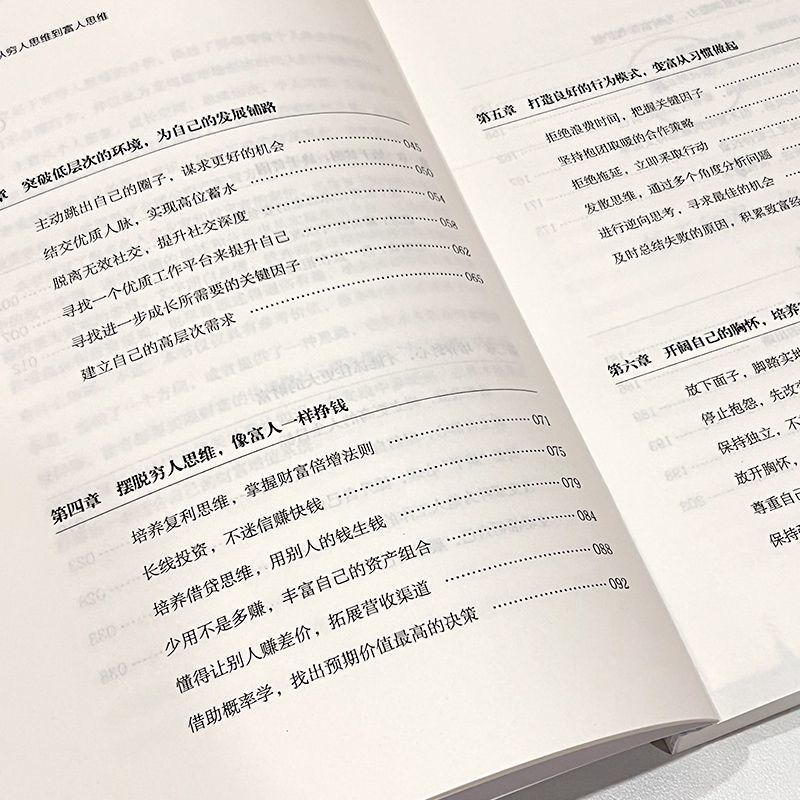 从穷人思维到富人思维
章 突破低层次的环境，为自己的发展铺路
主动跳出自己的圈子，谋求更好的机会 045
结交优质人脉，实现高位蓄水 050
脱离无效社交，提升社交深度 054
寻找一个优质工作平台来提升自己 058
寻找进一步成长所需要的关键因子 062
建立自己的高层次需求 065
第四章 摆脱穷人思维，像富人一样挣钱
培养复利思维，掌握财富倍增法则 071
长线投资，不迷信赚快钱 075
培养借贷思维，用别人的钱生钱 079
少用不是多赚，丰富自己的资产组合 084
懂得让别人赚差价，拓展营收渠道 088
借助概率学，找出预期价值最高的决策 092
第五章 打造良好的行为模式，变富从习惯做起
拒绝浪费时间，把握关键因子
坚持抱团取暖的合作策略
拒绝拖延，立即采取行动
发散思维，通过多个角度分析问题
进行逆向思考，寻求最佳的机会
及时总结失败的原因，积累致富经
第六章 开阔自己的胸怀，培养
放下面子，脚踏实地
停止抱怨，先改
保持独立，不
放开胸怀，
尊重自己
保持